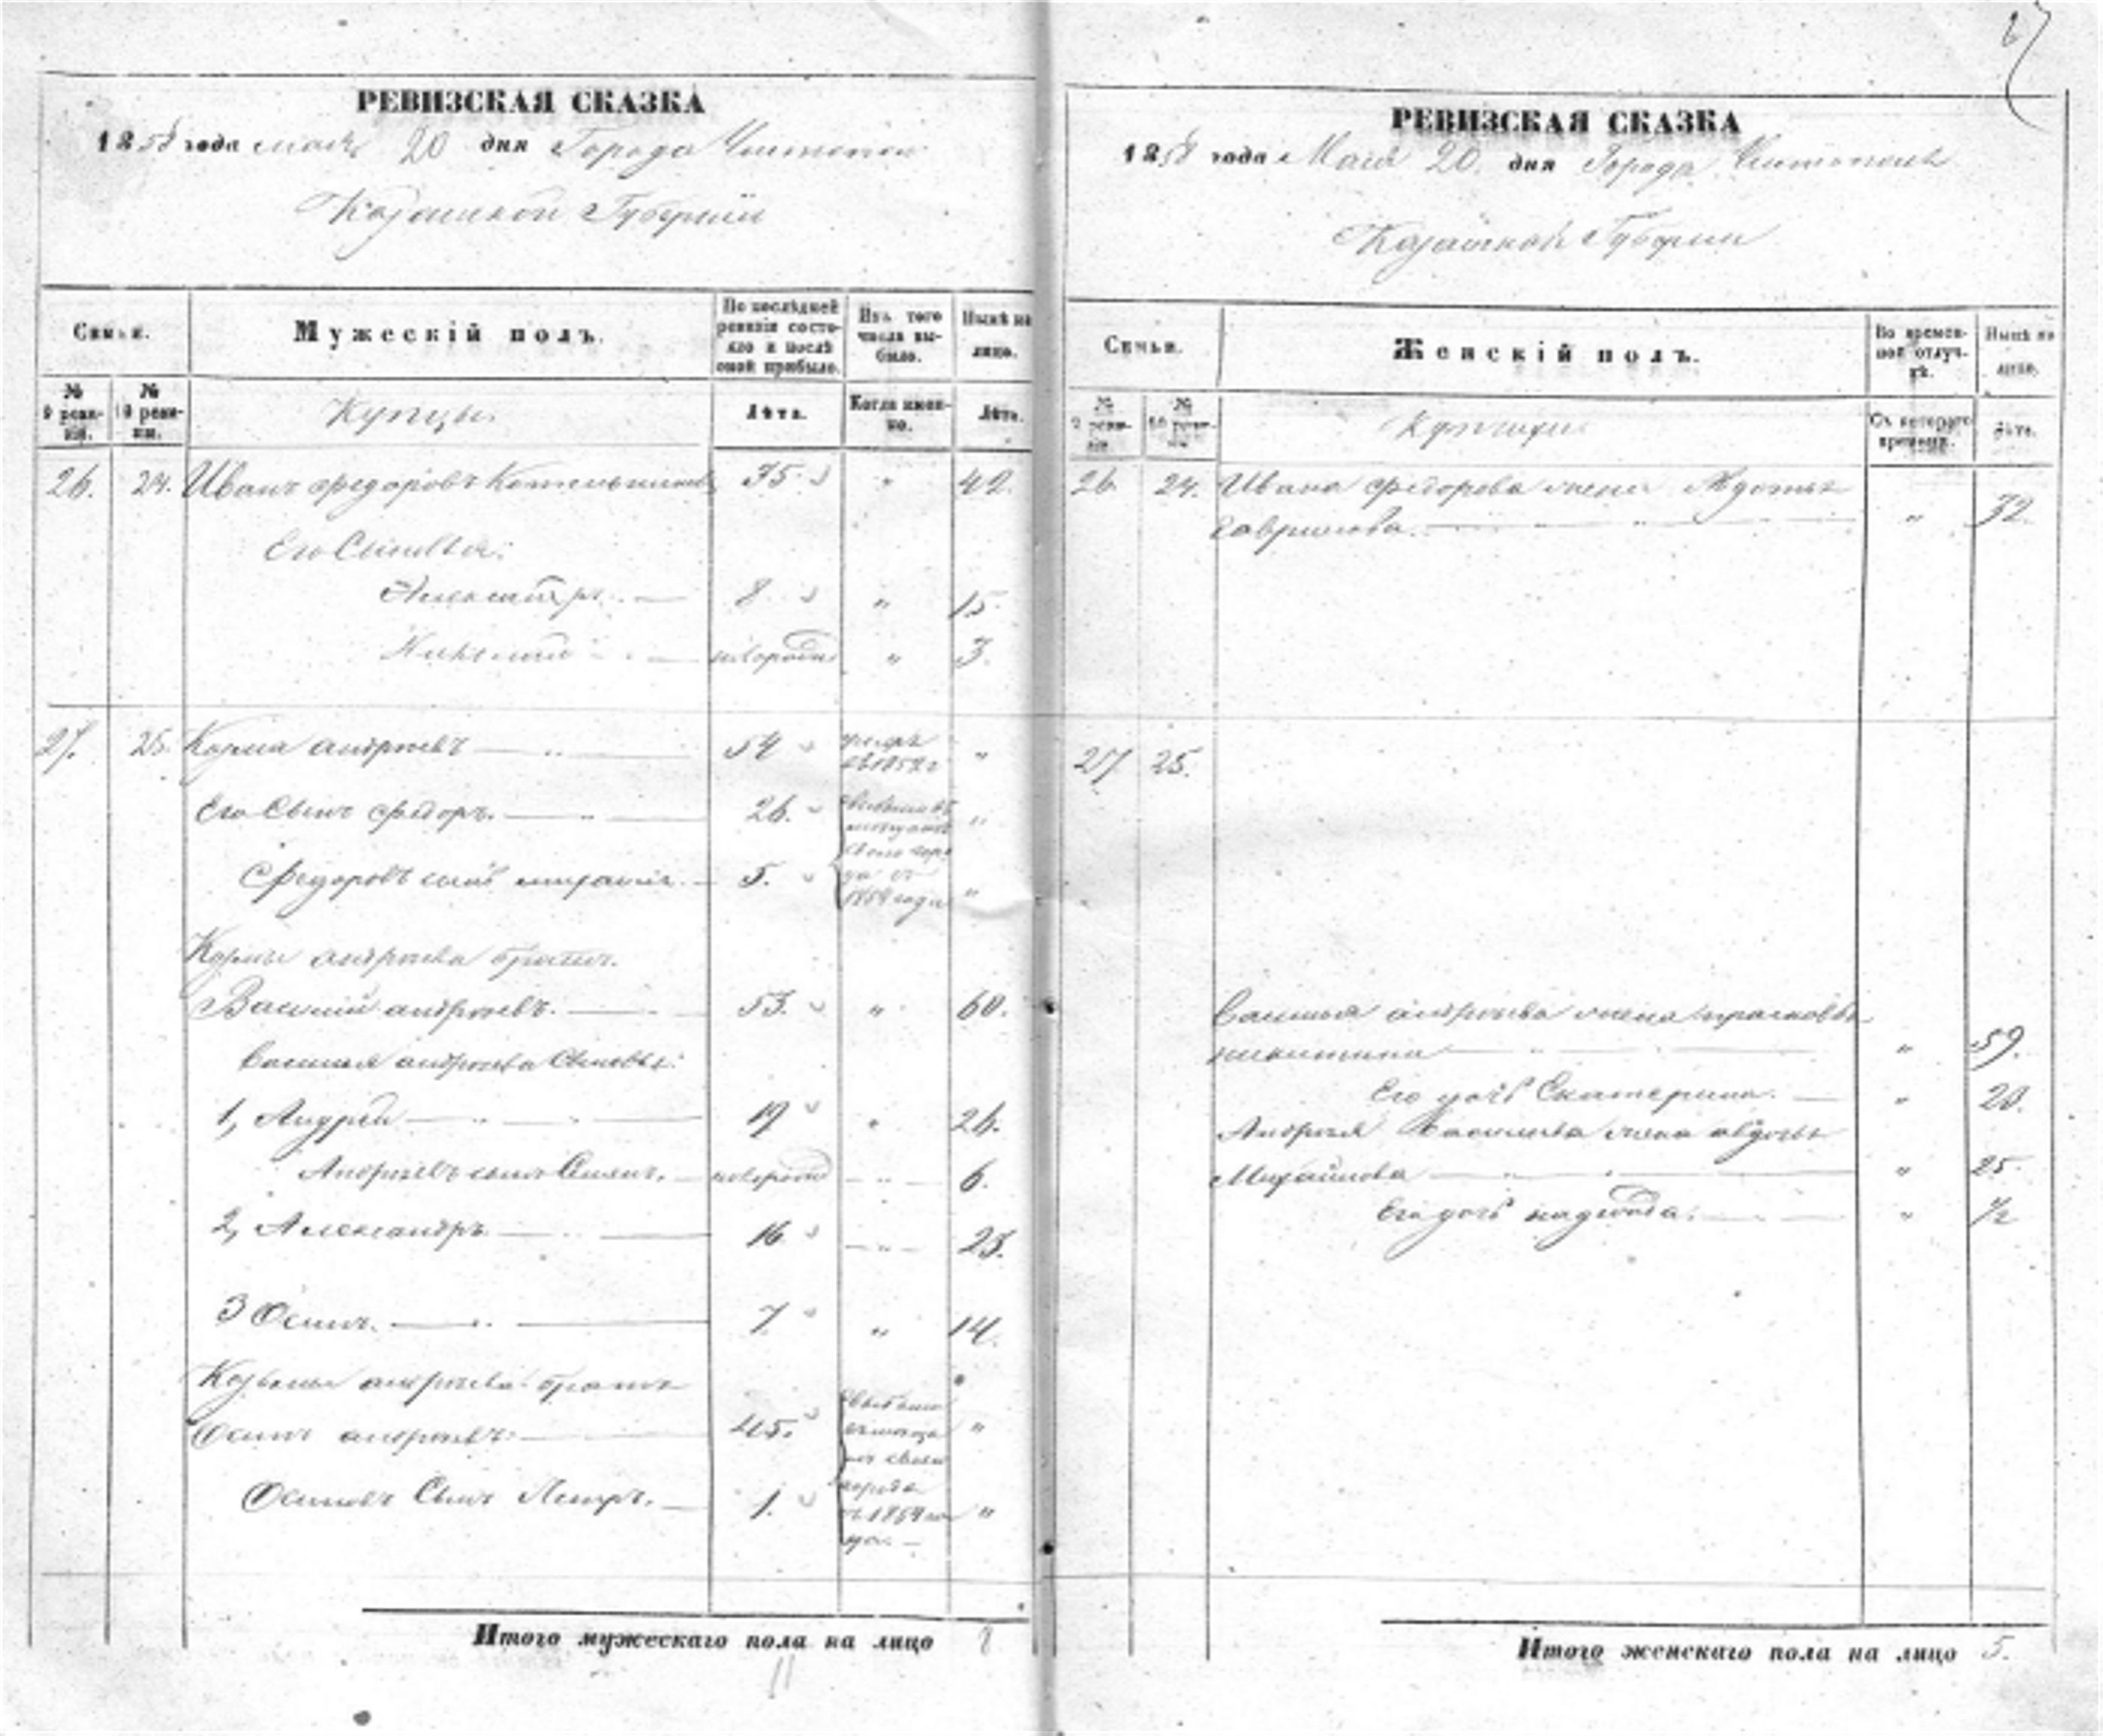 27
РЕВИЗСКАЯ СКАЗКА
1858 года мая 20 дня Города Чистополя
Казанской Губернии
Семьи.
Мужескій полъ.
По послѣдней ревизіи состояло и послѣ оной прибыло.
Изъ того числа выбыло.
Нынѣ на лицо.
№ 9 ревизіи.
№ 10 ревизіи.
Купцы.
Лѣта.
Когда именно.
Лѣта.
26. 24. Иванъ Федоровъ Котельников 35 " 42.
Его Сыновья:
Александръ. 8 " 15.
Николай новорожд " 3.
27. 25. Козма андреевъ 54 "
Его Сынъ Федоръ. 26. "
Федоровъ сынъ 5. "
1854 года
Козмы андреева братья.
Василий андреевъ. 53. " 60.
Василья андреева Сыновья:
1, Андрей 19 " 26.
Андреевъ сынъ новорожд " 6.
2, Александръ 16 " 23.
3 Осипъ. 7 " 14.
Козьмы андреева братъ
Осипъ андреевъ: 45. "
Осиповъ Сынъ Петръ. 1. "
Итого мужескаго пола на лицо 8
11
РЕВИЗСКАЯ СКАЗКА
1858 года Мая 20. дня Города Чистополя
Казанской Губернии
Семьи.
Женскій полъ.
Во временной отлучкѣ.
Нынѣ на лицо.
№ 9 ревизіи
№ 10 ревизіи
Купчихи
Съ котораго времени.
Лѣта.
26. 24. Ивана Федорова жена Авдотья
Гаврилова. " 32.
27 25.
Василья андреева жена Прасковья
никитина " 59.
Его дочь Екатерина. " 20.
Андрея Васильева жена авдотья
Михайлова " 25.
Его дочь надежда. " 1/2
Итого женскаго пола на лицо 5.